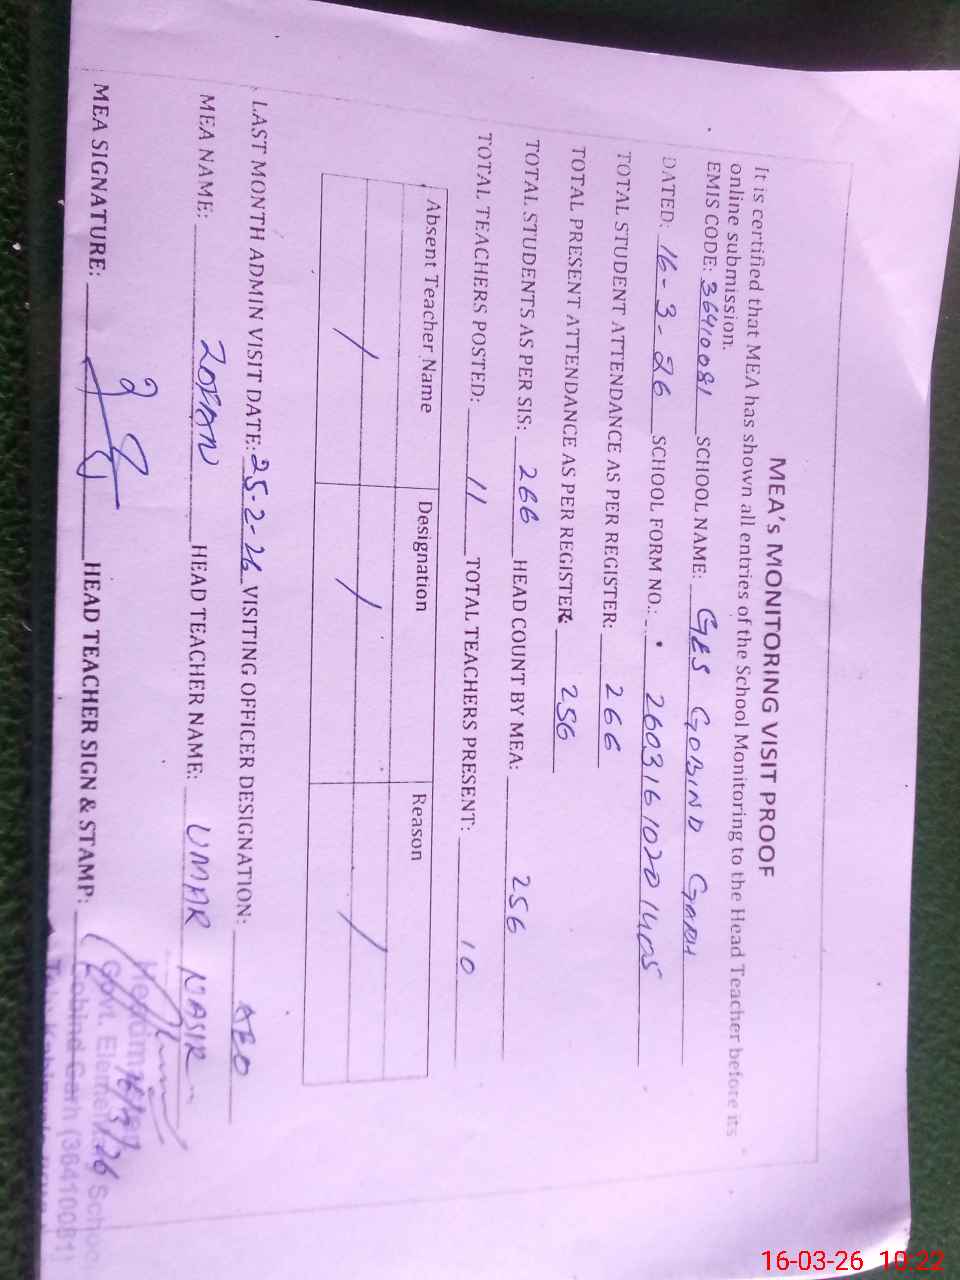 MEA's MONITORING VISIT PROOF
It is certified that MEA has shown all entries of the School Monitoring to the Head Teacher before its
online submission.
EMIS CODE: 36410081 SCHOOL NAME: GES GOBIND GARH
DATED: 16-3-26 SCHOOL FORM NO.: 260316102014
TOTAL STUDENT ATTENDANCE AS PER REGISTER: 266
TOTAL PRESENT ATTENDANCE AS PER REGISTER: 256
TOTAL STUDENTS AS PER SIS: 266 HEAD COUNT BY MEA: 256
TOTAL TEACHERS POSTED: 11 TOTAL TEACHERS PRESENT: 10
Absent Teacher Name Designation Reason
/ / /
LAST MONTH ADMIN VISIT DATE: 25-2-26 VISITING OFFICER DESIGNATION: AEO
MEA NAME: HEAD TEACHER NAME: UMAR NASIR
MEA SIGNATURE: HEAD TEACHER SIGN & STAMP:
16/3/26
Govt. Elementary School
Gobind Garh (36410081)
16-03-26 10:22